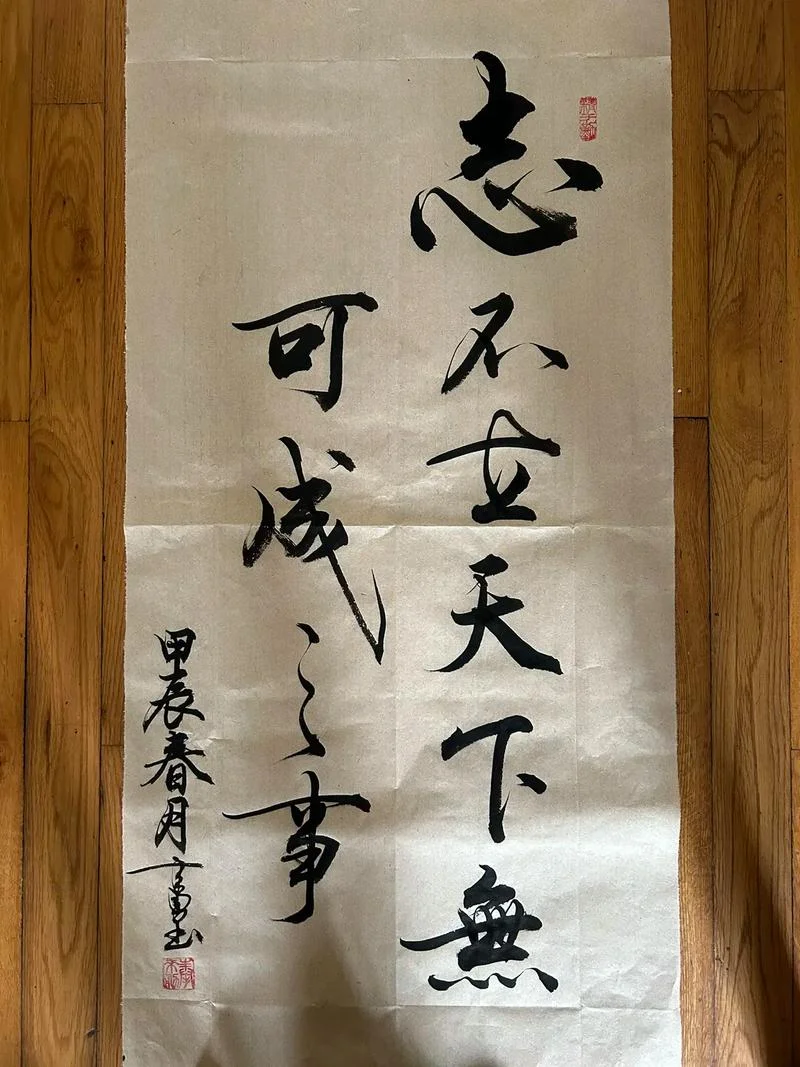 志不立天下無
可成之事
甲辰春月